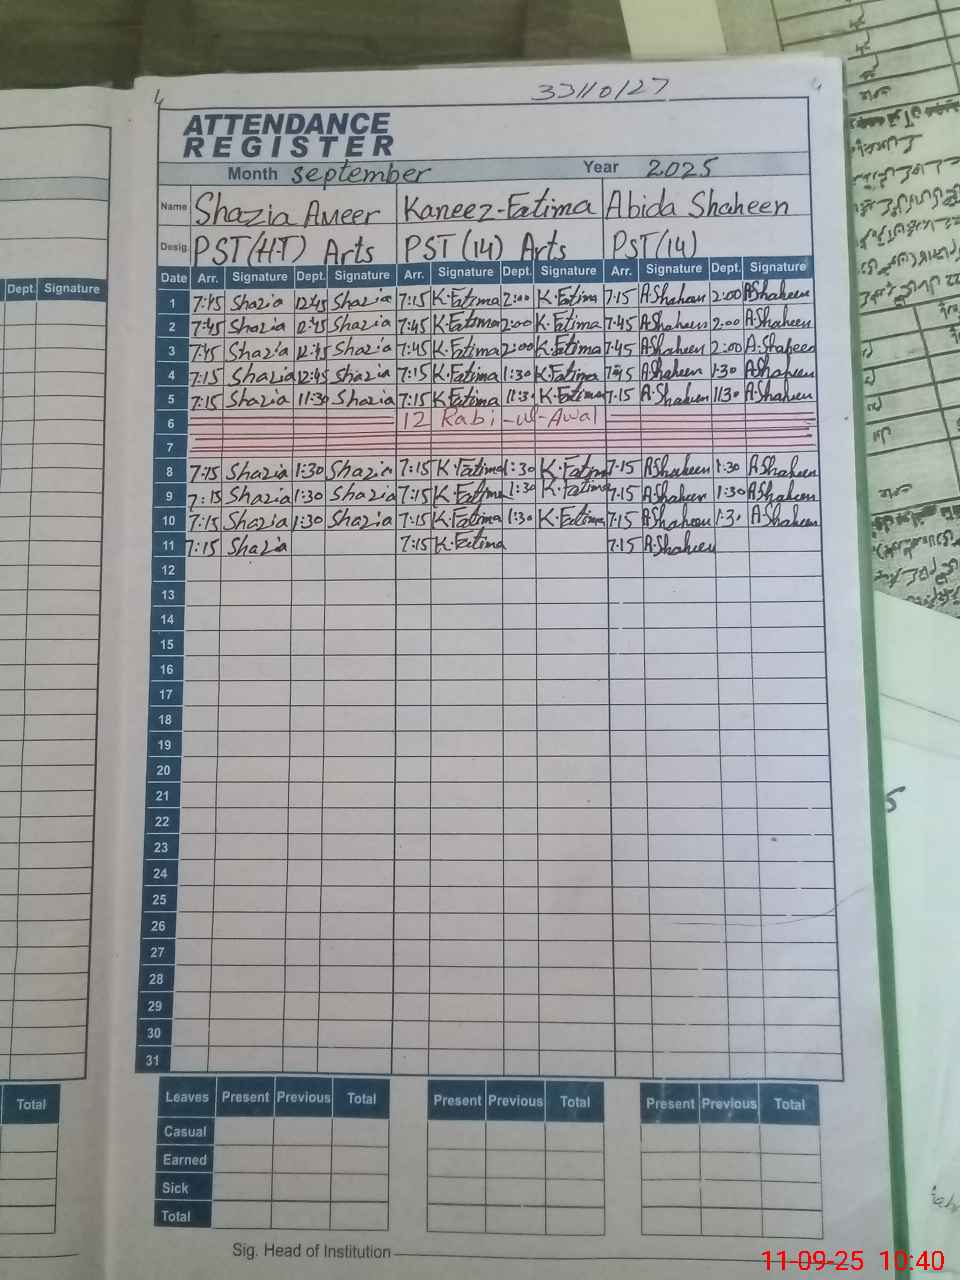 33110127
ATTENDANCE
REGISTER
Month september Year 2025
Name Shazia Ameer Kaneez-Fatima Abida Shaheen
Desig. PST(H-T) Arts PST(14) Arts PST(14)
Date Arr. Signature Dept. Signature Arr. Signature Dept. Signature Arr. Signature Dept. Signature
1 7:45 Shazia 12:45 Shazia 7:15 K.Fatima 2:00 K.Fatima 7:15 A.Shaheen 2:00 A.Shaheen
2 7:45 Shazia 12:45 Shazia 7:45 K.Fatima 2:00 K.Fatima 7:45 A.Shaheen 2:00 A.Shaheen
3 7:45 Shazia 12:45 Shazia 7:45 K.Fatima 2:00 K.Fatima 7:45 A.Shaheen 2:00 A.Shaheen
4 7:15 Shazia 12:45 Shazia 7:15 K.Fatima 1:30 K.Fatima 7:45 A.Shaheen 1:30 A.Shaheen
5 7:15 Shazia 11:30 Shazia 7:15 K.Fatima 11:3 K.Fatima 7:15 A.Shaheen 1130 A.Shaheen
6 12 Rabi-ul-Awal
7
8 7:15 Shazia 1:30 Shazia 7:15 K.Fatima 1:30 K.Fatima 7:15 A.Shaheen 1:30 A.Shaheen
9 7:15 Shazia 1:30 Shazia 7:15 K.Fatima 1:30 K.Fatima 7:15 A.Shaheen 1:30 A.Shaheen
10 7:15 Shazia 1:30 Shazia 7:15 K.Fatima 1:30 K.Fatima 7:15 A.Shaheen 1:3. A.Shaheen
11 7:15 Shazia 7:15 K.Fatima 7:15 A.Shaheen
12
13
14
15
16
17
18
19
20
21
22
23
24
25
26
27
28
29
30
31
Leaves Present Previous Total Present Previous Total Present Previous Total
Casual
Earned
Sick
Total
Sig. Head of Institution
Dept. Signature
Total
11-09-25 10:40